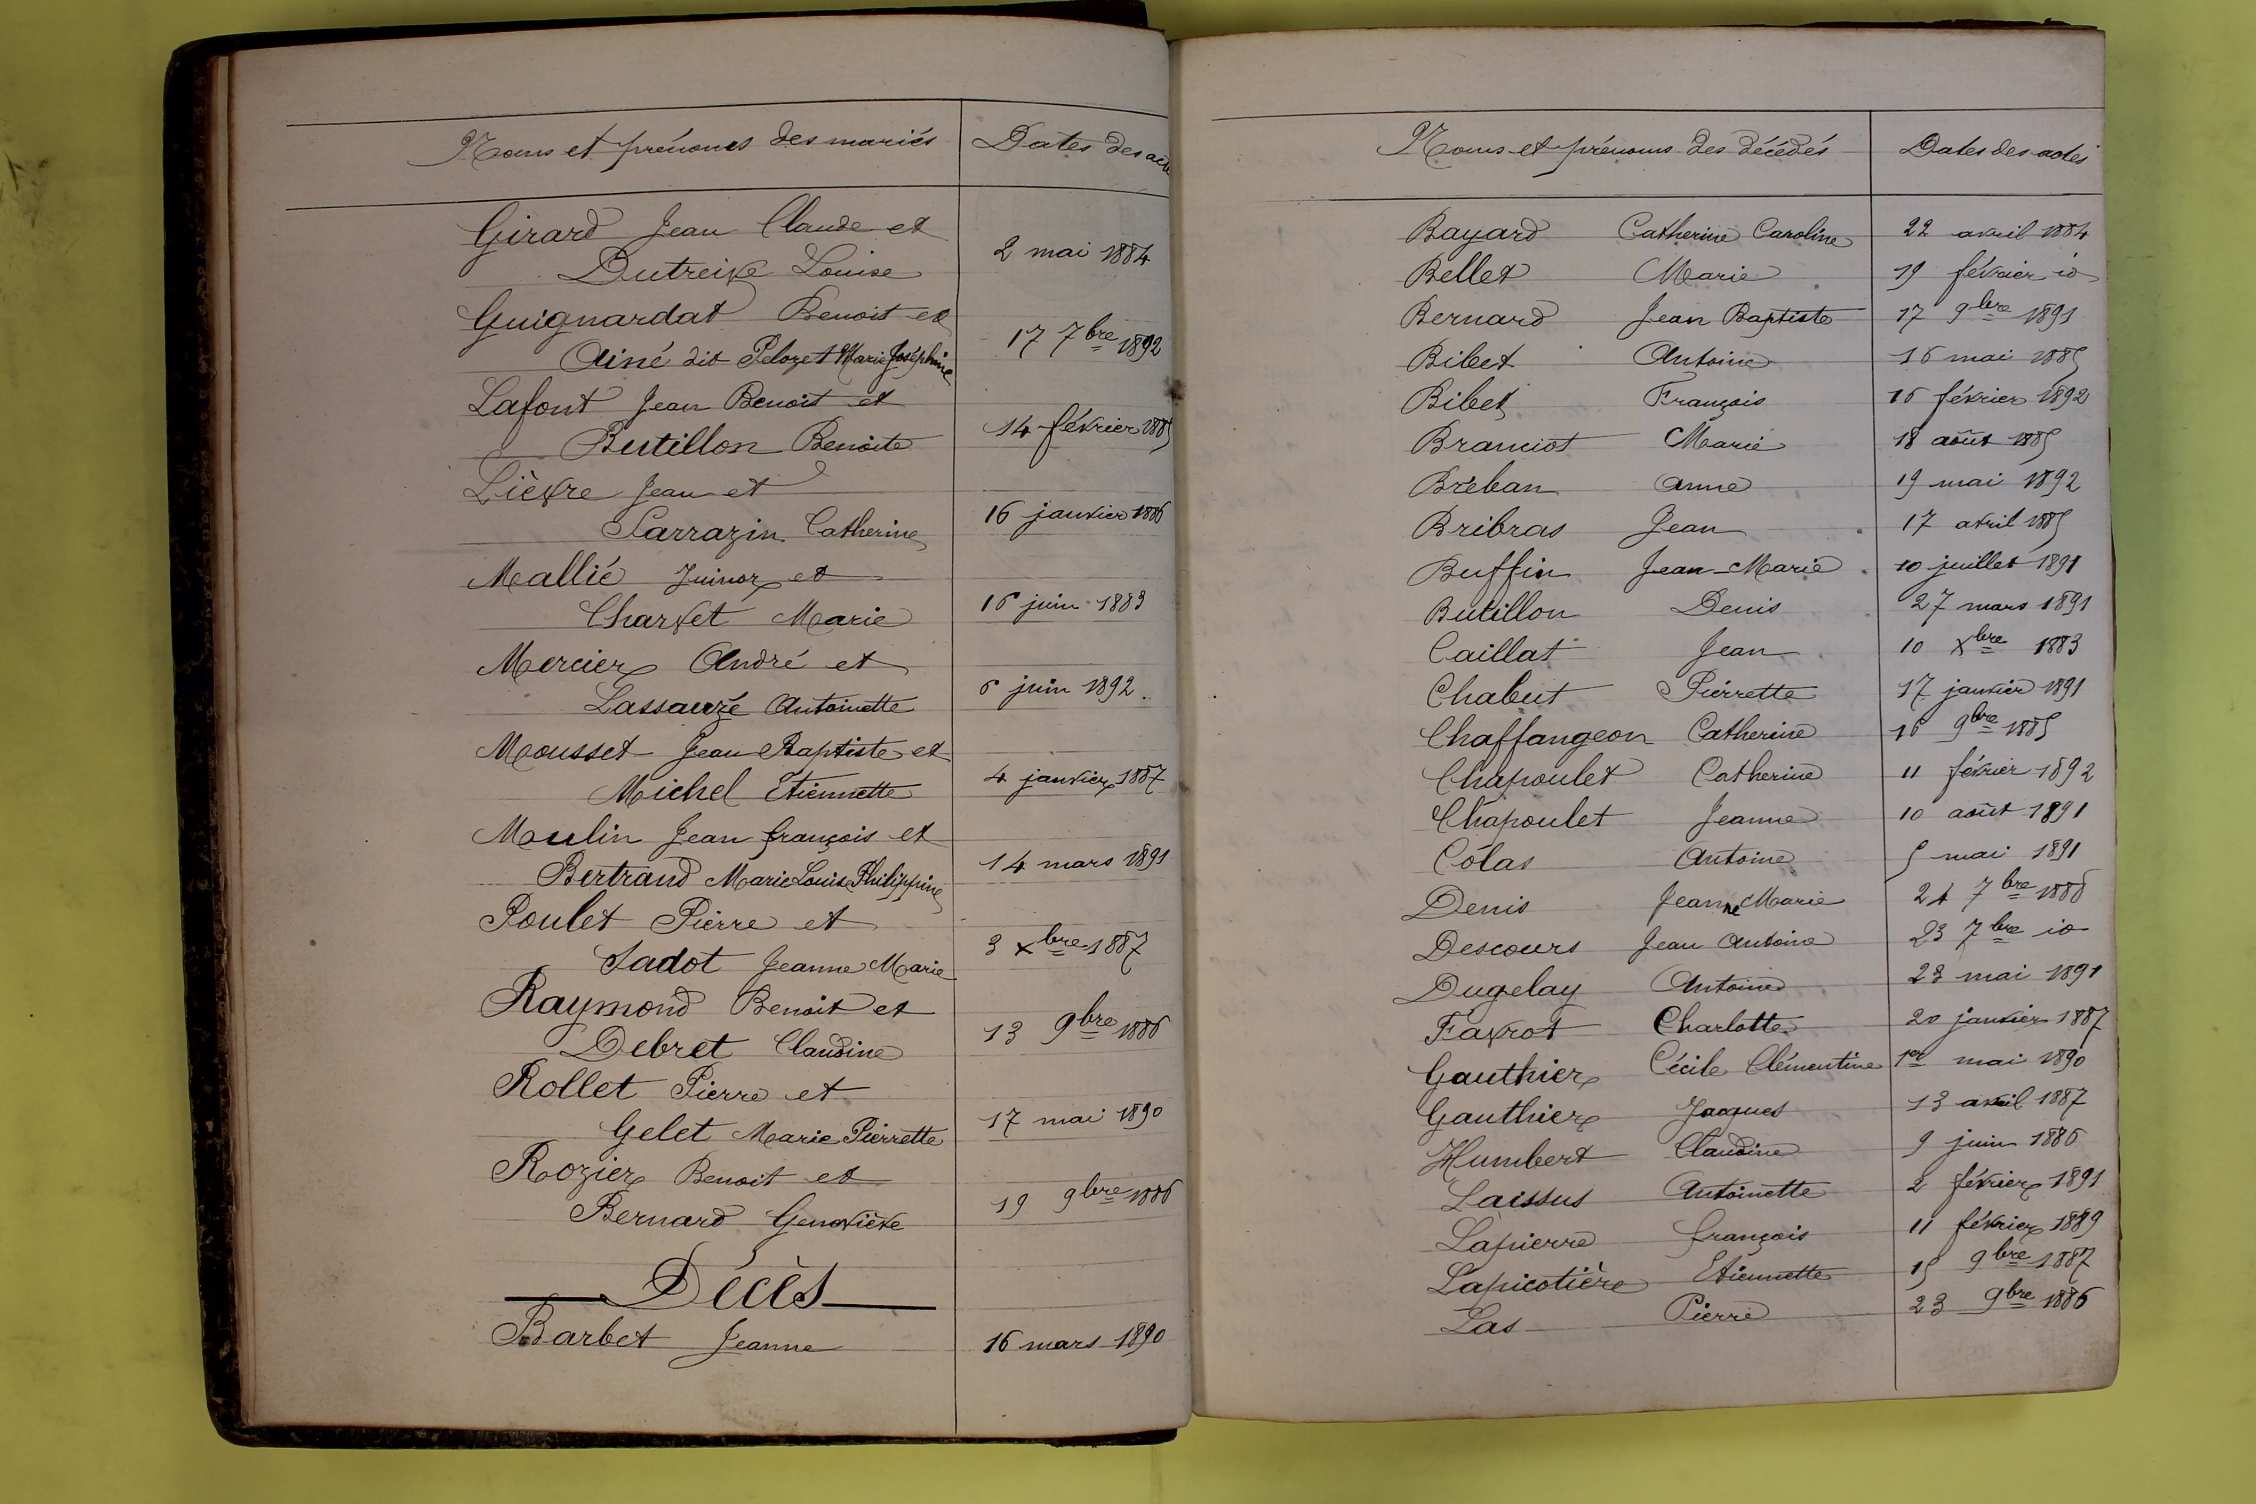 Noms et prénoms des mariés Dates des actes
Girard Jean Claude et
Dutreive Louise 2 mai 1884
Guignardat Benoit et
Ainé dit Pelozet Marie Joséphine 17 7bre 1892
Lafont Jean Benoit et
Butillon Benoite 14 février 1885
Lièvre Jean et
Sarrazin Catherine 16 janvier 1886
Mallié Juinor et
Charvet Marie 16 juin 1883
Mercier André et
Lassauzé Antoinette 6 juin 1892.
Mousset Jean Baptiste et
Michel Etiennette 4 janvier 1887
Moulin Jean françois et
Bertrand Marie Louise Philippine 14 mars 1891
Poulet Pierre et
Sadot Jeanne Marie 3 Xbre 1887
Raymond Benoit et
Debret Claudine 13 9bre 1886
Rollet Pierre et
Gelet Marie Pierrette 17 mai 1890
Rozier Benoit et
Bernard Geneviève 19 9bre 1886
Décès
Barbet Jeanne 16 mars 1890
Noms et prénoms des décédés Dates des actes
Bayard Catherine Caroline 22 avril 1884
Bellet Marie 19 février id
Bernard Jean Baptiste 17 9bre 1891
Bibet Antoine 16 mai 1885
Bibet François 16 février 1892
Branciot Marie 18 août 1885
Bréban Anne 19 mai 1892
Bribras Jean 17 avril 1885
Buffin Jean-Marie 10 juillet 1891
Butillon Denis 27 mars 1891
Caillat Jean 10 Xbre 1883
Chabut Pierrette 17 janvier 1891
Chaffangeon Catherine 16 9bre 1885
Chapoulet Catherine 11 février 1892
Chapoulet Jeanne 10 août 1891
Colas Antoine 5 mai 1891
Denis Jeanne Marie 24 7bre 1886
Descours Jean Antoine 23 7bre id
Dugelay Antoine 23 mai 1891
Favrot Charlotte 20 janvier 1887
Gauthier Cécile Clémentine 1er mai 1890
Gauthier Jacques 13 avril 1887
Humbert Claudine 9 juin 1886
Laissus Antoinette 2 février 1891
Lapierre françois 11 février 1889
Lapicotière Etiennette 15 9bre 1887
Las Pierre 23 9bre 1886